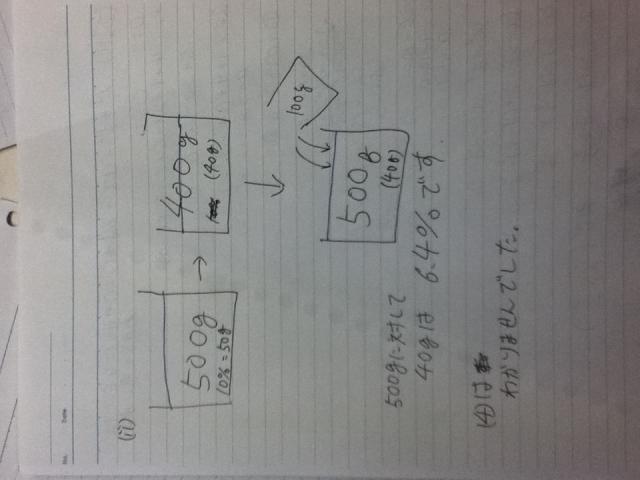 No.
Date
(ii)
500g
10%=50g
→
400g
(40g)
↓
100g
500g
(40g)
500gに対して
40gは 6.4%です
(4)は
わかりませんでした。